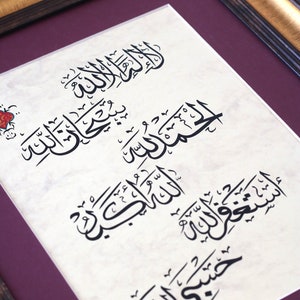 لا إله إلا الله
سبحان الله
الحمد لله
الله أكبر
أستغفر الله
حسبي